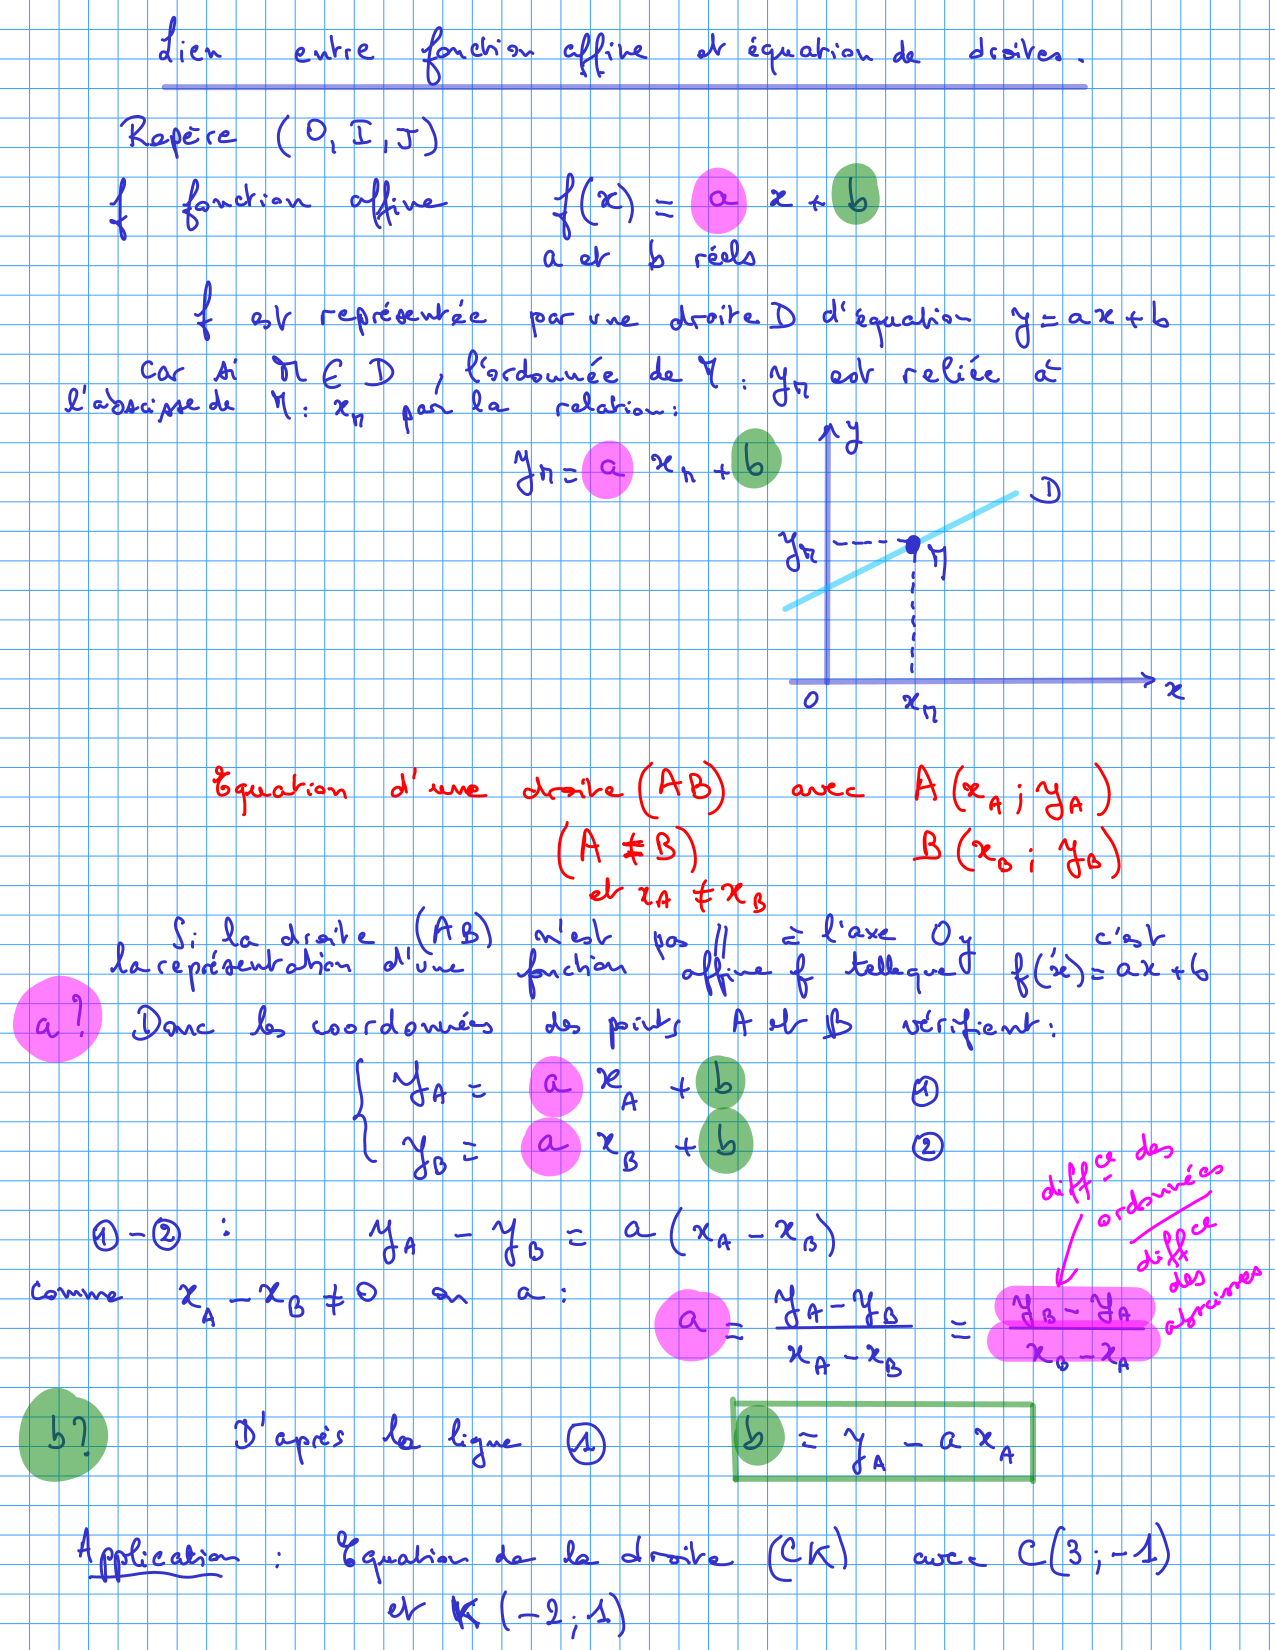 Lien entre fonction affine et équation de droites.
Repère (O, I, J)
f fonction affine f(x) = a x + b
a et b réels
f est représentée par une droite D d'équation y = ax + b
Car si M ∈ D, l'ordonnée de M : y_M est reliée à
l'abscisse de M : x_M par la relation :
y_M = a x_M + b
y
D
y_M
M
O
x_M
x
Equation d'une droite (AB) avec A (x_A ; y_A)
(A ≠ B) B (x_B ; y_B)
et x_A ≠ x_B
Si la droite (AB) n'est pas // à l'axe Oy c'est
la représentation d'une fonction affine f telle que f(x) = ax + b
a? Donc les coordonnées des points A et B vérifient :
{ y_A = a x_A + b ①
y_B = a x_B + b ②
diff^ce des
ordonnées
diff^ce
des
abscisses
① - ② : y_A - y_B = a (x_A - x_B)
Comme x_A - x_B ≠ 0 on a :
a = (y_A - y_B)/(x_A - x_B) = (y_B - y_A)/(x_B - x_A)
b? D'après la ligne ① b = y_A - a x_A
Application : Equation de la droite (CK) avec C(3 ; -1)
et K (-2 ; 1)